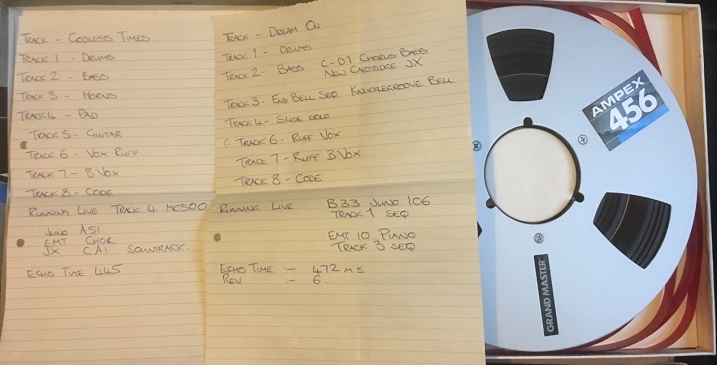 Track - Godless Times
Track 1 - Drums
Track 2 - Bass
Track 3 - Horns
Track 4 - Pad
Track 5 - Guitar
Track 6 - Vox Ruff
Track 7 - B Vox
Track 8 - Code
Running Live Track 4 MC500
Juno A51
EMT Choir
JX CA1 Soundtrack.
Echo Time 445
Track - Drum On
Track 1 - Drums
Track 2 - Bass C-D1 Chorus Bass
New Cartridge JX
Track 3 - End Bell Seq Knucklegroove Bell
Track 4 - Slide Solo
Track 6 - Ruff Vox
Track 7 - Ruff B Vox
Track 8 - Code
Running Live B33 Juno 106
Track 1 Seq
EMT 10 Piano
Track 3 Seq
Echo Time :- 472 ms
Rev :- 6.
AMPEX
456
GRAND MASTER